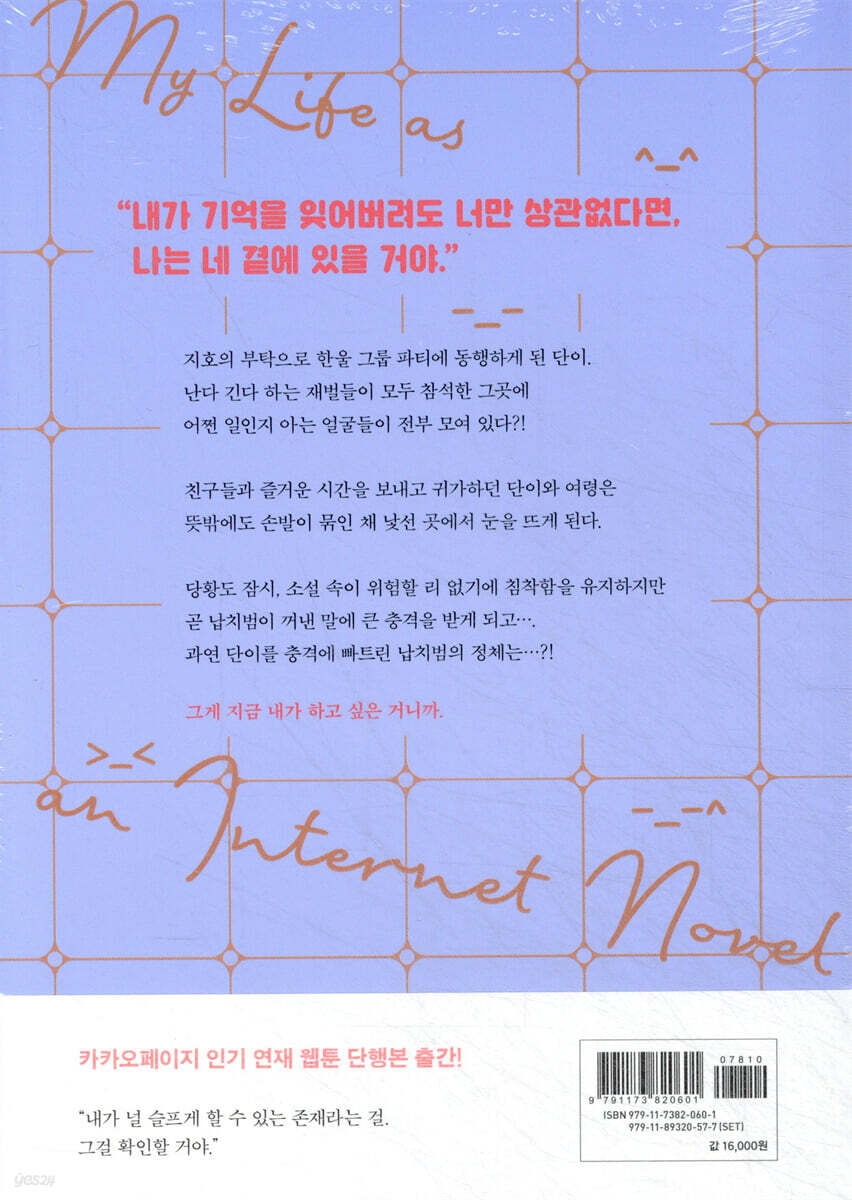 My Life as
^_^
“내가 기억을 잊어버려도 너만 상관없다면,
나는 네 곁에 있을 거야.”
-_-
지호의 부탁으로 한울 그룹 파티에 동행하게 된 단이.
난다 긴다 하는 재벌들이 모두 참석한 그곳에
어쩐 일인지 아는 얼굴들이 전부 모여 있다?!
친구들과 즐거운 시간을 보내고 귀가하던 단이와 여령은
뜻밖에도 손발이 묶인 채 낯선 곳에서 눈을 뜨게 된다.
당황도 잠시, 소설 속이 위험할 리 없기에 침착함을 유지하지만
곧 납치범이 꺼낸 말에 큰 충격을 받게 되고….
과연 단이를 충격에 빠트린 납치범의 정체는…?!
그게 지금 내가 하고 싶은 거니까.
>_<
an Internet Novel
-_-^
카카오페이지 인기 연재 웹툰 단행본 출간!
“내가 널 슬프게 할 수 있는 존재라는 걸.
그걸 확인할 거야.”
07810
9 791173 820601
ISBN 979-11-7382-060-1
979-11-89320-57-7 [SET]
값 16,000원
yes24